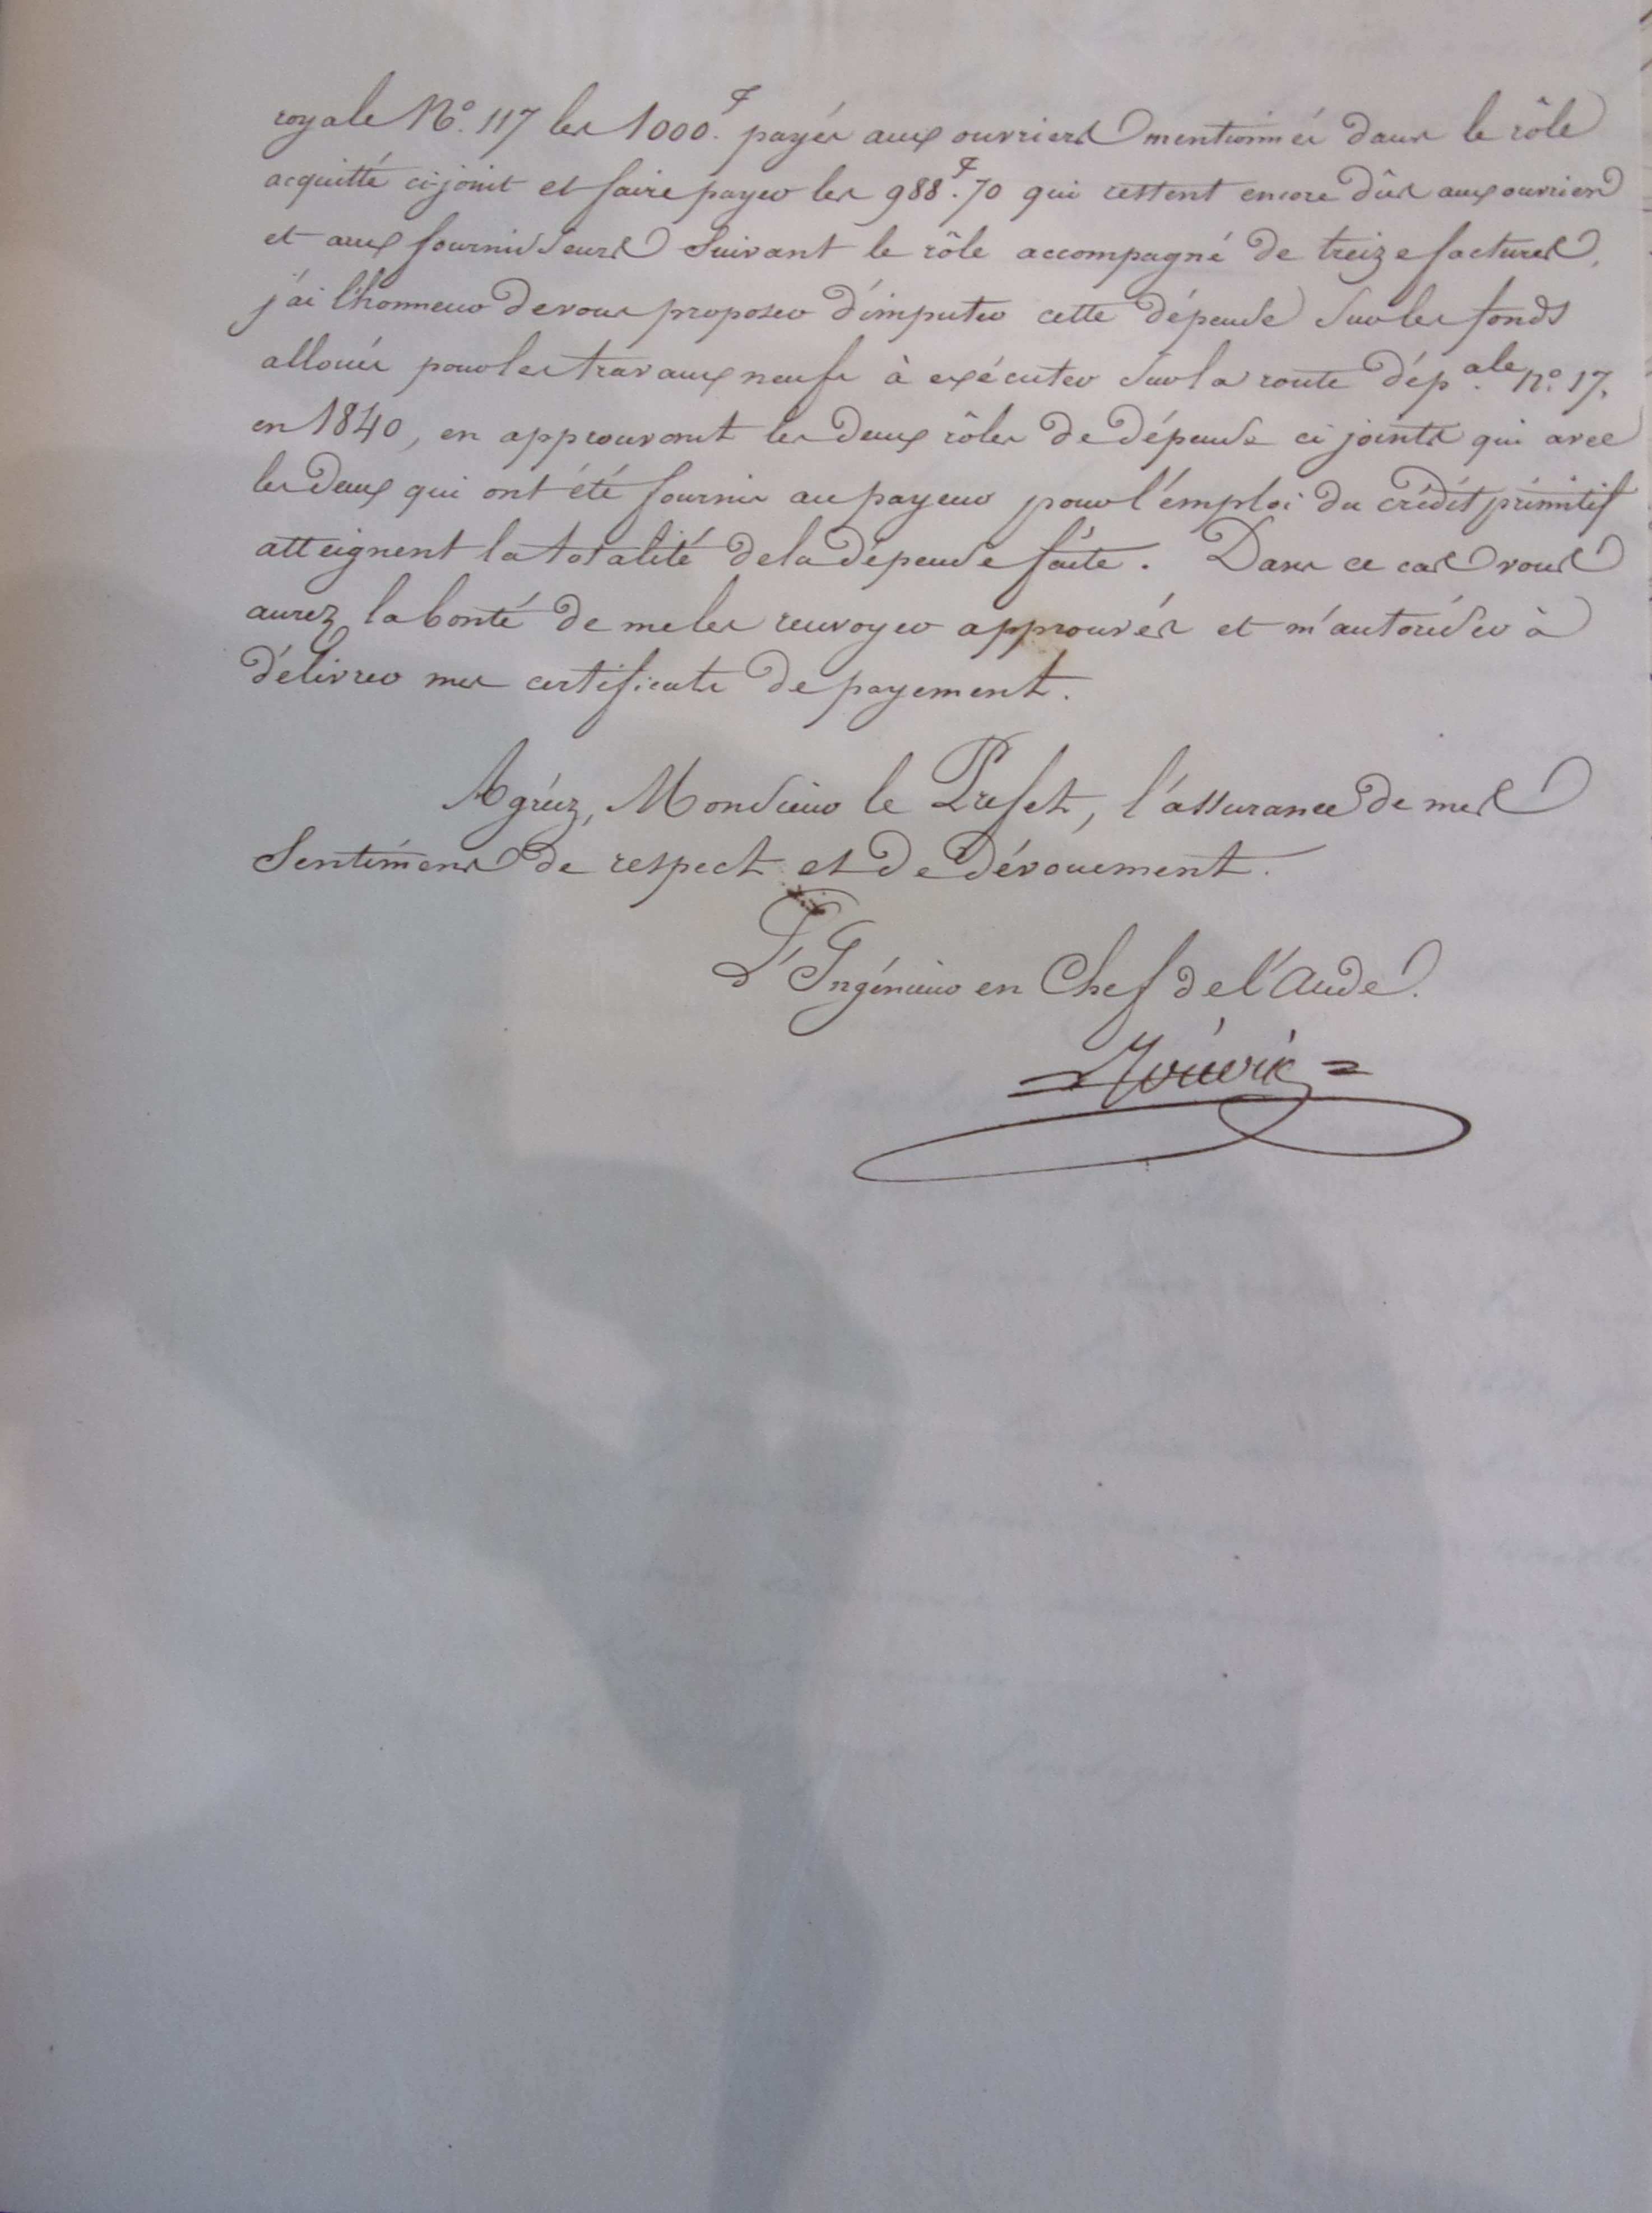 royale N.° 117 les 1000.f payés aux ouvriers mentionnés dans le rôle
acquitté ci-joint et faire payer les 988.f 70 qui restent encore dûs aux ouvriers
et aux fournisseurs suivant le rôle accompagné de treize factures,
j'ai l'honneur de vous proposer d'imputer cette dépense sur les fonds
alloués pour les travaux neufs à exécuter sur la route dép.ale n.° 17.
en 1840, en approuvant les deux rôles de dépense ci joints qui avec
les deux qui ont été fournis au payeur pour l'emploi du crédit primitif
atteignent la totalité de la dépense faite. Dans ce cas vous
aurez la bonté de me les renvoyer approuvés et m'autoriser à
délivrer mes certificats de payement.
Agréez, Monsieur le Préfet, l'assurance de mes
Sentimens de respect et de dévouement.
L'Ingénieur en Chef de l'Aude.